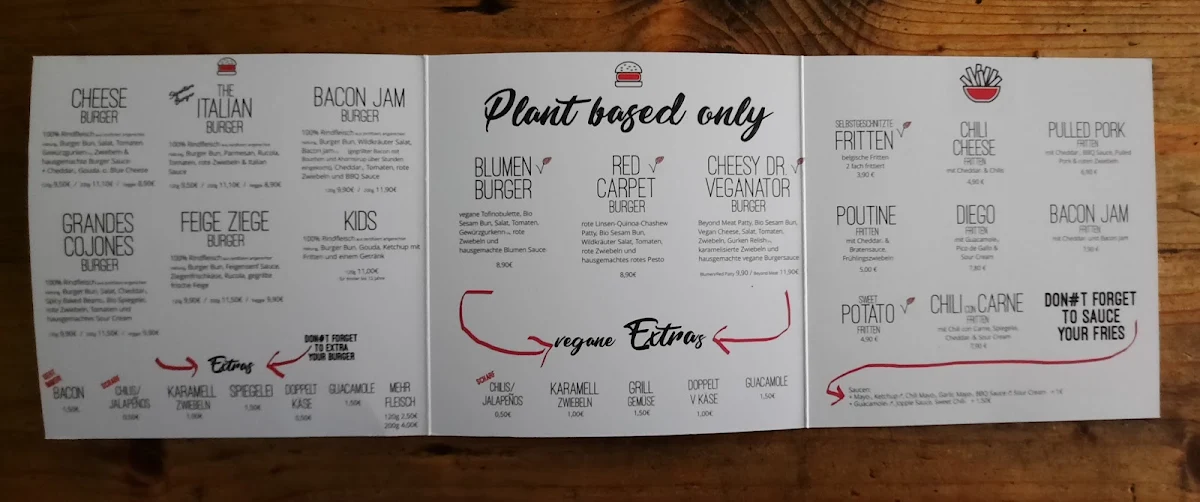 CHEESE
BURGER
100% Rindfleisch aus zertifiziert artgerechter
Haltung, Burger Bun, Salat, Tomaten,
Gewürzgurken, Zwiebeln &
hausgemachte Burger Sauce
+ Cheddar, Gouda, o. Blue Cheese
120g 9,50€ / 200g 11,10€ / Veggie 8,90€
Signature
Burger
THE
ITALIAN
BURGER
100% Rindfleisch aus zertifiziert artgerechter
Haltung, Burger Bun, Parmesan, Rucola,
Tomaten, rote Zwiebeln & Italian
Sauce
120g 9,50€ / 200g 11,10€ / Veggie 8,90€
BACON JAM
BURGER
100% Rindfleisch aus zertifiziert artgerechter
Haltung, Burger Bun, Wildkräuter Salat,
Bacon Jam (gegrillter Bacon mit
Bourbon und Ahornsirup über Stunden
eingekocht), Cheddar, Tomaten, rote
Zwiebeln und BBQ Sauce
120g 9,90€ / 200g 11,90€
GRANDES
COJONES
BURGER
100% Rindfleisch aus zertifiziert artgerechter
Haltung, Burger Bun, Salat, Cheddar,
Spicy Baked Beans, Bio Spiegelei,
rote Zwiebeln, Tomaten und
hausgemachtes Sour Cream
120g 9,90€ / 200g 11,50€ / Veggie 9,90€
FEIGE ZIEGE
BURGER
100% Rindfleisch aus zertifiziert artgerechter
Haltung, Burger Bun, Feigensenf Sauce,
Ziegenfrischkäse, Rucola, gegrillte
frische Feige
120g 9,90€ / 200g 11,50€ / Veggie 9,90€
KIDS
100% Rindfleisch aus zertifiziert artgerechter
Haltung, Burger Bun, Gouda, Ketchup mit
Fritten und einem Getränk
120g 11,00€
für Kinder bis 12 Jahre
DON#T FORGET
TO EXTRA
YOUR BURGER
Extras
BACON
1,50€
SCHARF
CHILIS/
JALAPEÑOS
0,50€
KARAMELL
ZWIEBELN
1,00€
SPIEGELEI
1,50€
DOPPELT
KÄSE
0,50€
GUACAMOLE
1,50€
MEHR
FLEISCH
120g 2,50€
200g 4,00€
Plant based only
BLUMEN
BURGER
vegane Tofinobulette, Bio
Sesam Bun, Salat, Tomaten,
Gewürzgurken, rote
Zwiebeln und
hausgemachte Blumen Sauce
8,90€
RED
CARPET
BURGER
rote Linsen-Quinoa-Chashew
Patty, Bio Sesam Bun,
Wildkräuter Salat, Tomaten,
rote Zwiebeln und
hausgemachtes rotes Pesto
8,90€
CHEESY DR.
VEGANATOR
BURGER
Beyond Meat Patty, Bio Sesam Bun,
Vegan Cheese, Salat, Tomaten,
Zwiebeln, Gurken Relish,
karamelisierte Zwiebeln und
hausgemachte vegane Burgersauce
Blumenfeld Patty 9,90 / Beyond Meat 11,90€
vegane Extras
SCHARF
CHILIS/
JALAPEÑOS
0,50€
KARAMELL
ZWIEBELN
1,00€
GRILL
GEMÜSE
1,50€
DOPPELT
V.KÄSE
1,00€
GUACAMOLE
1,50€
SELBSTGESCHNITZTE
FRITTEN
belgische Fritten
2 fach frittiert
3,90 €
CHILI
CHEESE
FRITTEN
mit Cheddar, & Chilis
4,90 €
PULLED PORK
FRITTEN
mit Cheddar, BBQ Sauce, Pulled
Pork & roten Zwiebeln
6,90 €
POUTINE
FRITTEN
mit Cheddar, &
Bratensauce,
Frühlingszwiebeln
5,00 €
DIEGO
FRITTEN
mit Guacamole,
Pico de Gallo &
Sour Cream
7,80 €
BACON JAM
FRITTEN
mit Cheddar und Bacon Jam
7,90 €
SWEET
POTATO
FRITTEN
4,90 €
CHILI CON CARNE
FRITTEN
mit Chili con Carne, Spiegelei,
Cheddar, & Sour Cream
7,90 €
DON#T FORGET
TO SAUCE
YOUR FRIES
Saucen:
Mayo, Ketchup, Chili Mayo, Garlic Mayo, BBQ Sauce, Sour Cream + 1€
Guacamole, Joppie Sauce, Sweet Chili + 1,50€